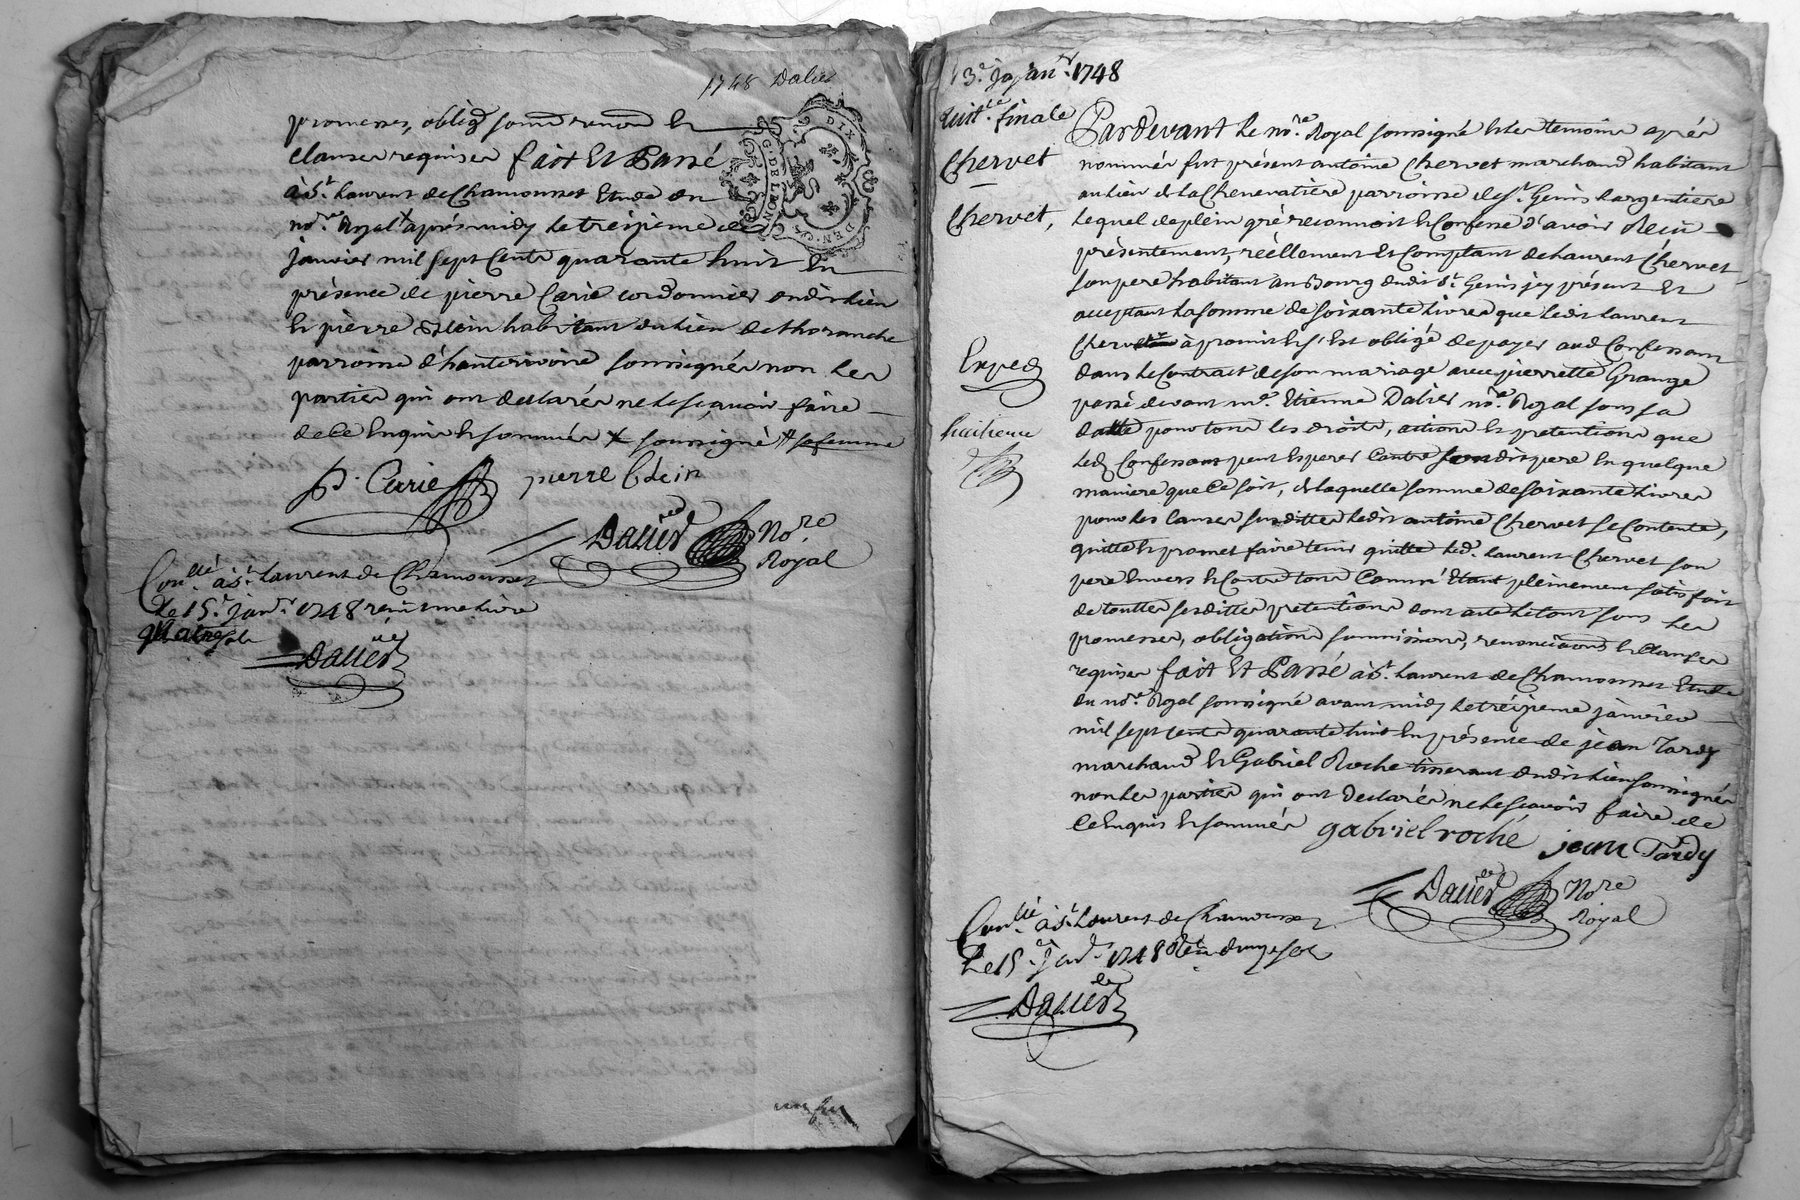 1748 Dalier
promesses, obligd soumd renond Et
clauses requises fait Et Passé
à St. Laurent de Chamousset Etude du
nore. Royal + après midy Le treizieme de
janvier mil sept Cents quarante huit En
présence de pierre Carie cordonnier dudit Lieu
Et pierre habitant du Lieu de thoranche
parroisse d'hauterivoire soussignés non Les
parties qui ont declarés ne le sçavoir faire
de Ce Enquis Et sommés + soussigné sa femme
P. Carie pierre
Dalier Nore
Royal
Conllé à St. Laurent de Chamousset
Le 15e janvr 1748
Dalier
G. DE LYON
DIX DEN.
13e. Janr. 1748
Quitce. finale
Chervet
Chervet,
Exped
huitieme
Pardevant Le nore. Royal soussigné Et les temoins après
nommés fut présent antoine Chervet marchand habitant
au lieu de la Chenevatière parroisse de St. Genis Largentiere
Lequel de plein gré reconnoit Et Confesse d'avoir Reçu
présentement, réellement Et Comptant de Laurent Chervet
son pere habitant au Bourg dudit St. Genis jcy présent Et
acceptant La somme de soixante Livres que Ledit Laurent
Chervet à promis Et s'Est obligé de payer aud Confessant
dans Le Contract de son mariage avec pierrette Grange
passé devant me. Etienne Dalier nore. Royal sous sa
datte pour tous les droits, actions Et pretentions que
Led Confessant peut Esperer Contre sondit pere En quelque
maniere que Ce soit, de laquelle somme de soixante Livres
pour Les Causes susdittes Ledit antoine Chervet se Contente,
quitte Et promet faire tenir quitte Led. Laurent Chervet son
pere Envers Et Contre tous Comm' Etant pleinement satisfait
de touttes sesdittes pretentions dont acte Le tout sous Les
promesses, obligations soumissions, renonciations Et Clauses
requises fait Et Passé à St. Laurent de Chamousset Etude
du nore. Royal soussigné avant midy Le treizieme janvier
mil sept cents quarante huit En présence de jean Tardy
marchand Et Gabriel Roche tisserant dudit Lieu soussignés
non Les parties qui ont declarés ne Le sçavoir faire de
Ce Enquis Et sommés gabriel roche jean Tardy
Dalier Nore
Royal
Conllé à St. Laurent de Chamousset
Le 15e. Janr. 1748 Reçu douze sols
Dalier